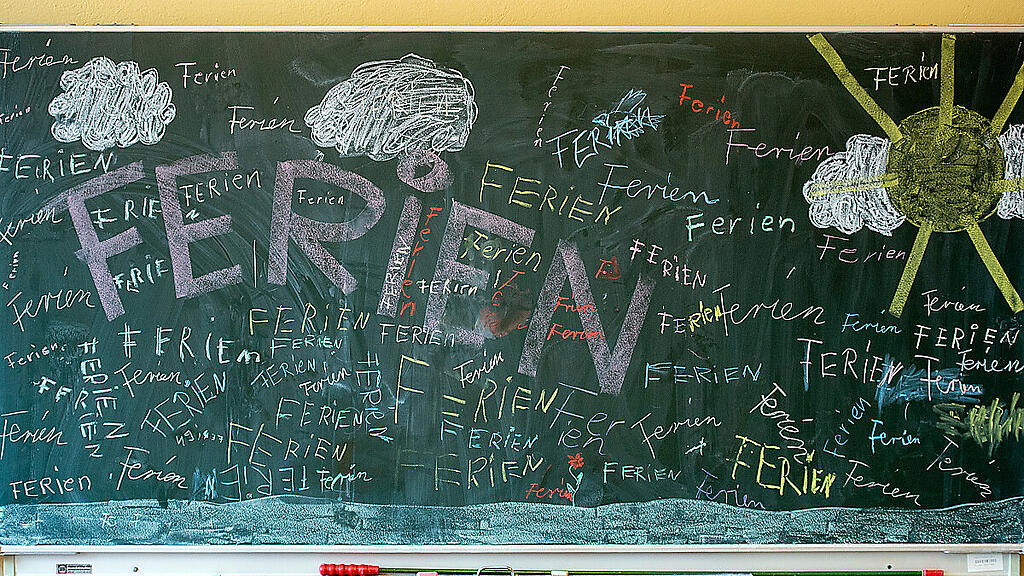 Ferien
Ferien
FERiEN
Ferien
Ferien
Ferien
FERIEN
Ferien
FERIEN
FERiEN
Ferien
FERiEN
Ferien
FERIE
N
FERIEN
Ferien
FERiEN
Ferien
Ferien
Ferien
Ferien
Ferien
FERIE
FERIEN
Ferien
Ferien
FERiEN
FERIEN
Ferien
Ferien
FERIEN
FERIEN
Ferien
Ferien
Ferien
FERIEN
FERIEN
FERIEN
FERiEN
FERIEN
Ferien
FERIEN
Ferien
Ferien
Ferien
FERIEN
Ferien
FERIEN
FERIEN
Ferien
FERIEN
FERIEN
FERIEN
Fer
ien
Ferien
Ferien
Ferien
Ferien
Ferien
FERIEN
FERIEN
FERIEN
FERIEN
Ferien
FERIEN
Ferien
FERIEN
Ferien
FERIEN
Ferien
FERIEN
FERiEN
Ferien
Ferien
Ferien